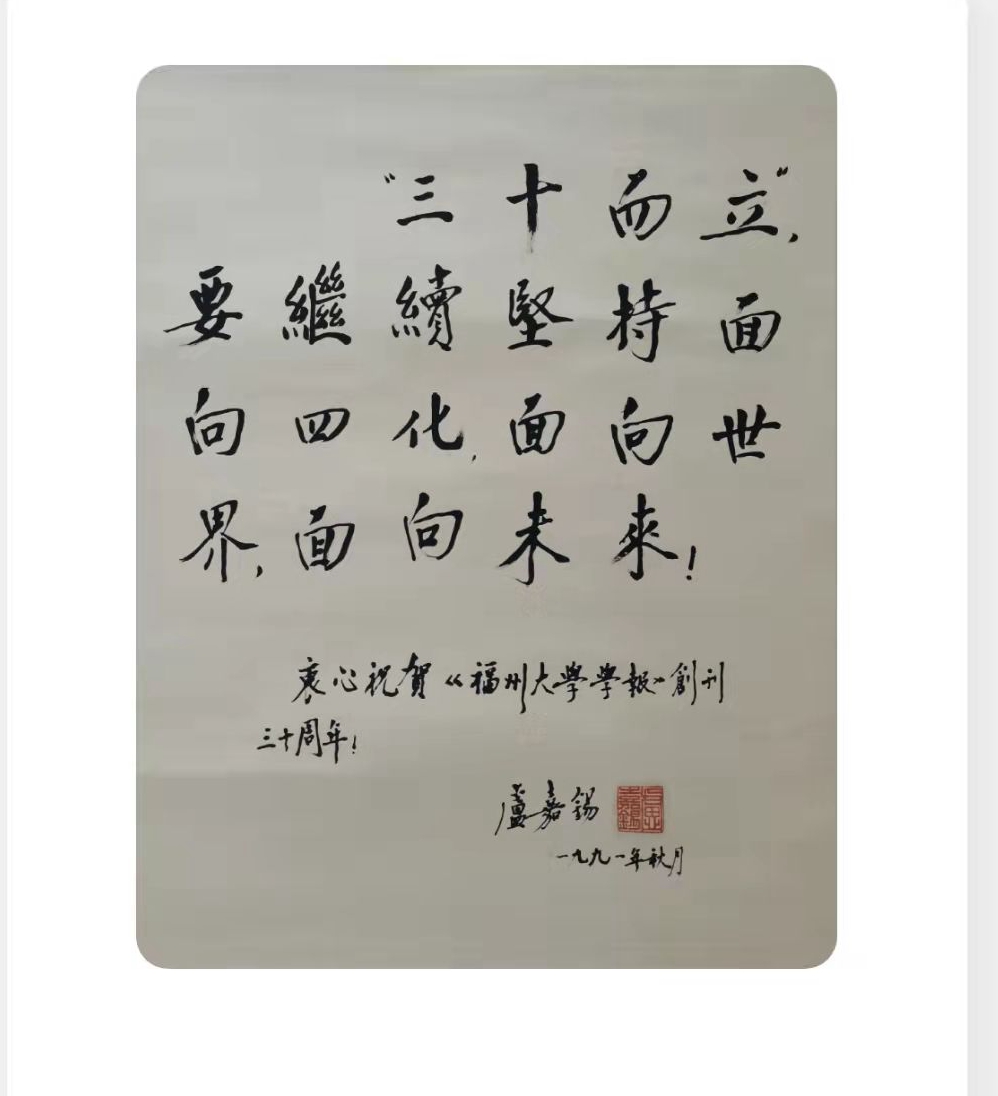 “三十而立”，
要繼續堅持面
向四化，面向世
界，面向未來！
衷心祝賀《福州大學學報》創刊
三十周年！
盧嘉錫
一九九一年秋月